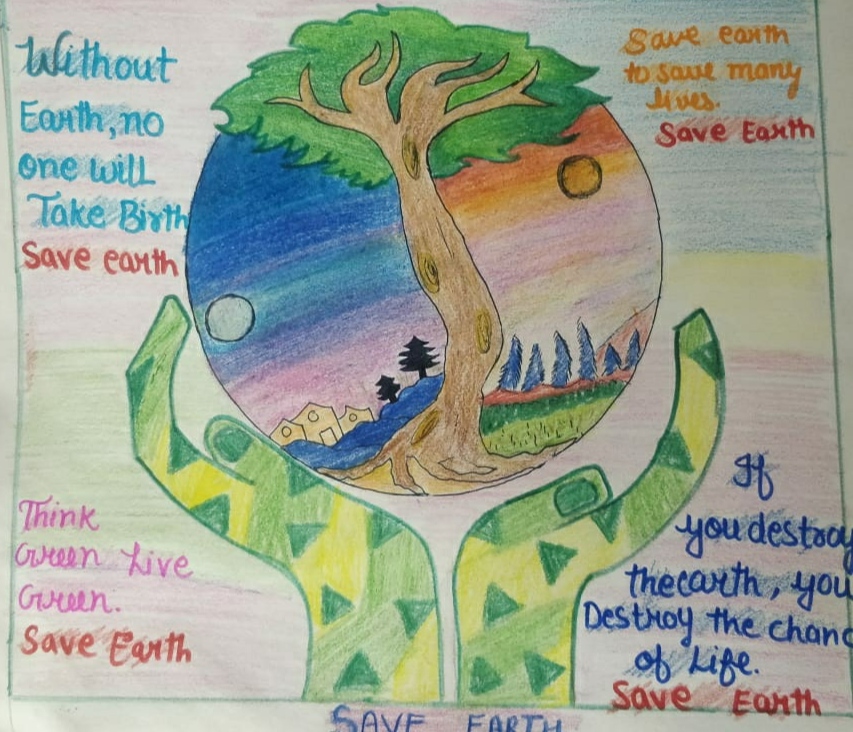 Without
Earth, no
one will
Take Birth
Save earth
Save earth
to save many
lives.
Save Earth
Think
Green Live
Green.
Save Earth
If
you destroy
the earth, you
Destroy the chanc
of Life.
Save Earth
SAVE EARTH